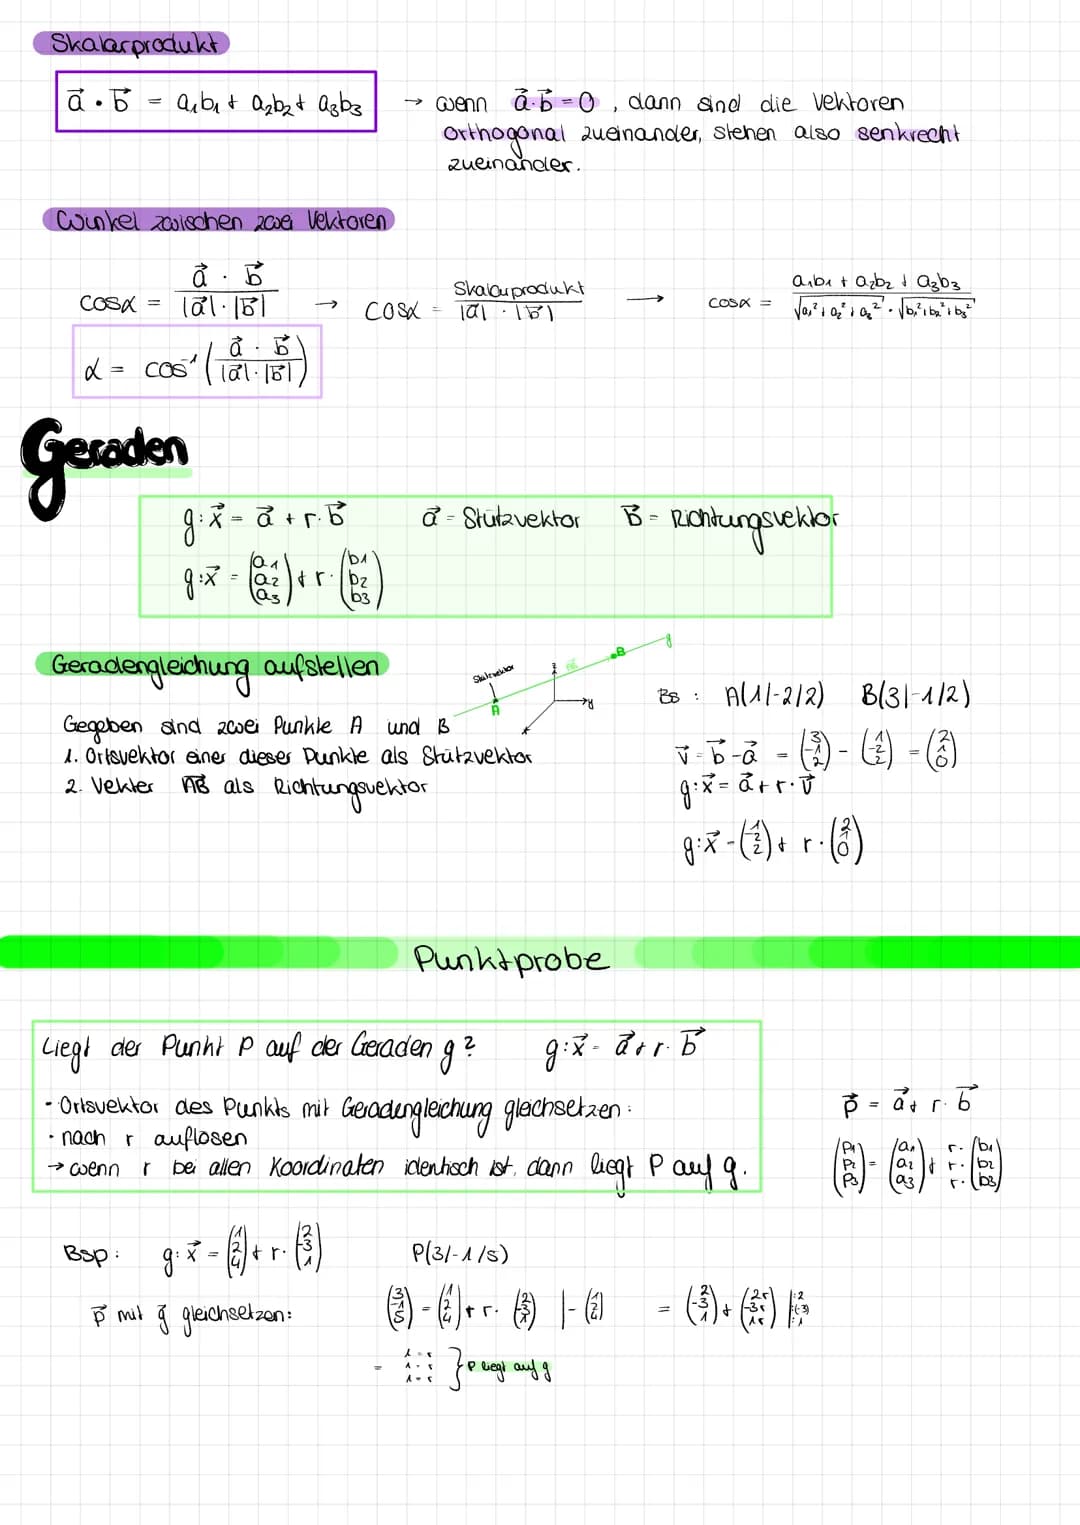 Skalarprodukt
a⃗ • b⃗ = a₁b₁ + a₂b₂ + a₃b₃ → wenn a⃗·b⃗ = 0, dann sind die Vektoren
orthogonal zueinander, stehen also senkrecht
zueinander.
Winkel zwischen zwei Vektoren
cosα = (a⃗ · b⃗) / (|a⃗|·|b⃗|) → cosα = Skalarprodukt / (|a⃗| · |b⃗|) → cosα = (a₁b₁ + a₂b₂ + a₃b₃) / (√a₁²+a₂²+a₃² · √b₁²+b₂²+b₃²)
α = cos⁻¹ ((a⃗ · b⃗) / (|a⃗|·|b⃗|))
Geraden
g:x⃗ = a⃗ + r·b⃗ a⃗ = Stützvektor b⃗ = Richtungsvektor
g:x⃗ = (a₁ a₂ a₃) + r·(b₁ b₂ b₃)
Geradengleichung aufstellen
Stützvektor A B g y
Gegeben sind zwei Punkte A und B
1. Ortsvektor einer dieser Punkte als Stützvektor
2. Vekter AB⃗ als Richtungsvektor
BS : A(1/-2/2) B(3/-1/2)
v⃗ = b⃗-a⃗ = (3 -1 2) - (1 -2 2) = (2 1 0)
g:x⃗ = a⃗ + r·v⃗
g:x⃗ - (1 -2 2) + r·(2 1 0)
Punktprobe
Liegt der Punkt P auf der Geraden g? g:x⃗ = a⃗ + r·b⃗
• Ortsvektor des Punkts mit Geradengleichung gleichsetzen:
• nach r auflösen
→ wenn r bei allen Koordinaten identisch ist, dann liegt P auf g.
p⃗ = a⃗ + r·b⃗
(p₁ p₂ p₃) = (a₁ a₂ a₃) + r· r· r· (b₁ b₂ b₃)
Bsp: g:x⃗ = (1 2 4) + r·(2 -3 1) P(3/-1/5)
p⃗ mit g⃗ gleichsetzen: (3 -1 5) = (1 2 4) + r·(2 -3 1) |-(1 2 4) = (2 -3 1) + (2r -3r 1r) |:2 :(-3) :1
= 1=r 1=r 1=r } P liegt auf g